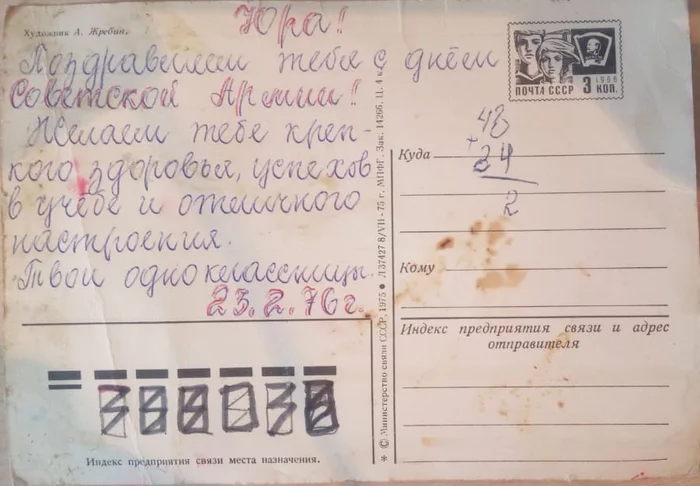 Художник А. Жребин.
Юра!
Поздравляем тебя с днём
Советской Армии!
Желаем тебе креп-
кого здоровья, успехов
в учёбе и отличного
настроения.
Твои одноклассницы.
23.2.76 г.
ПОЧТА СССР 3 КОП.
1966
48
+
34
2
Куда
Кому
Индекс предприятия связи и адрес
отправителя
Индекс предприятия связи места назначения.
* © Министерство связи СССР, 1975 ● Л 37427 8/VII-75 г. МПФГ. Зак. 14266. Ц. 4 к.